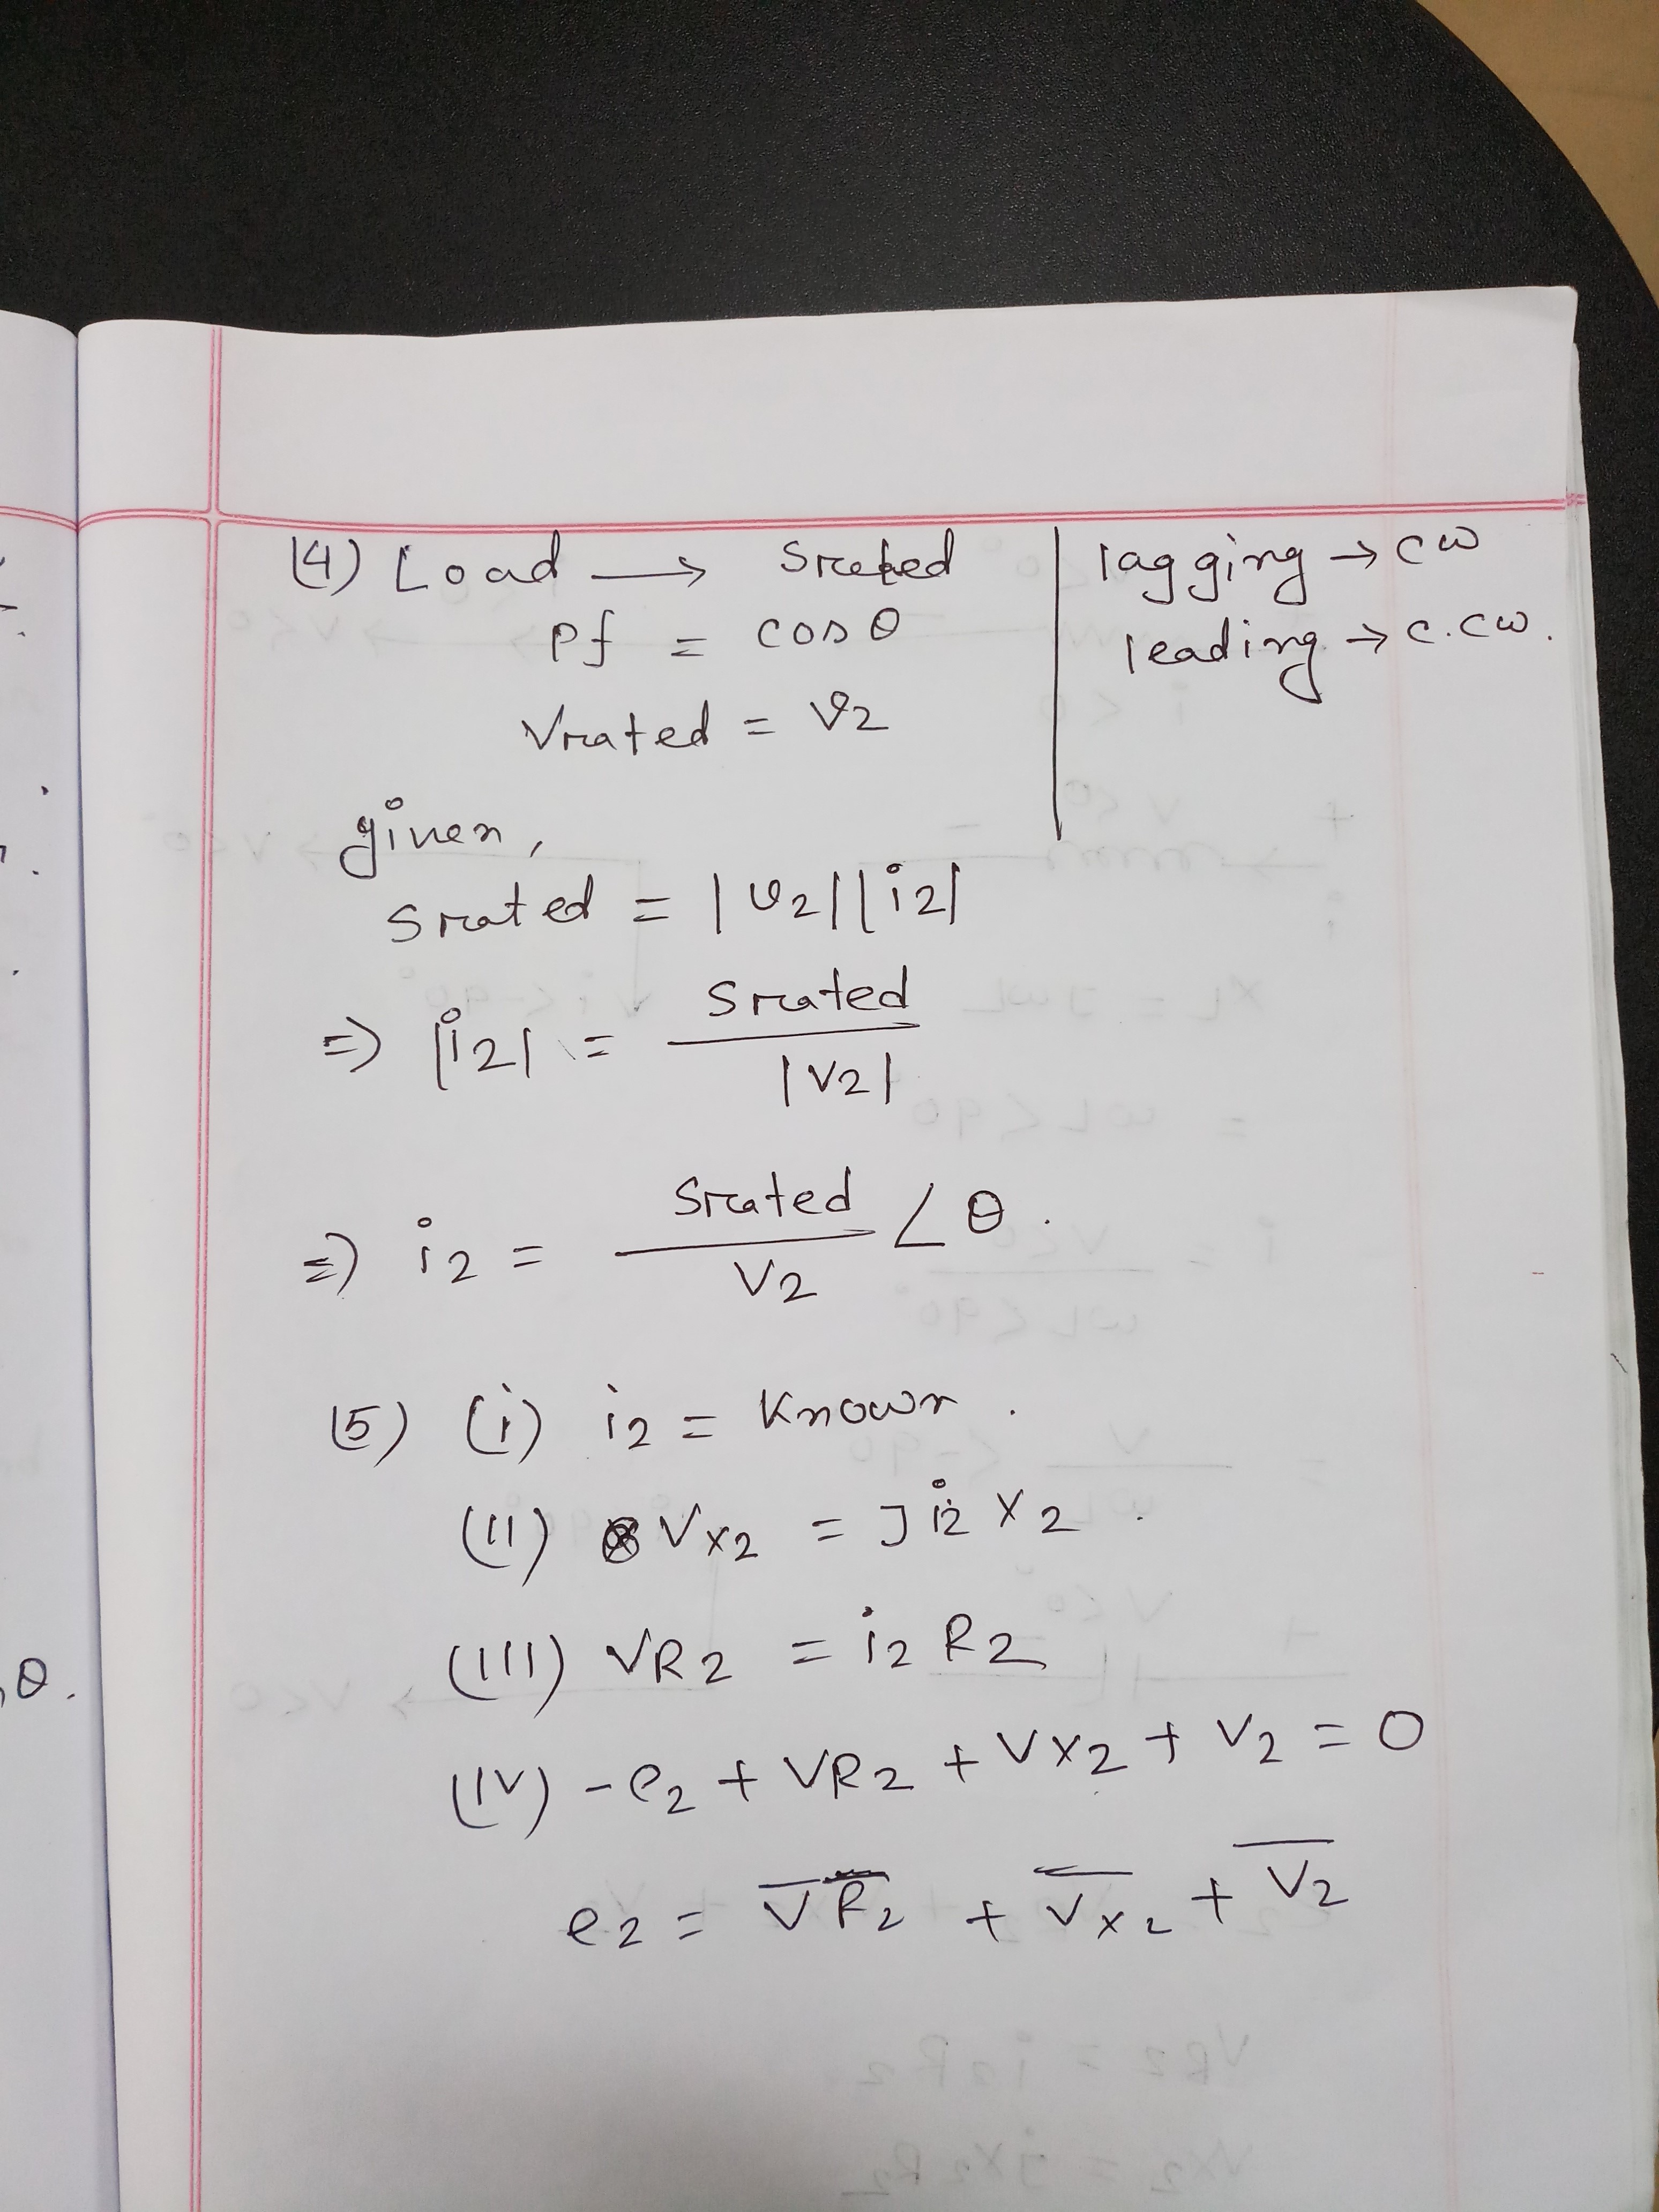 (4) Load → Srated
pf = cosθ
Vrated = V2
lagging → cw
leading → c.cw.
given,
Srated = |V2||i2|
⇒ |i2| = Srated / |V2|
⇒ i2 = Srated / V2 ∠θ.
(5) (i) i2 = Known.
(II) Vx2 = J i2 X2.
(III) VR2 = i2 R2
(IV) -e2 + VR2 + VX2 + V2 = 0
e2 = V̅R̅2 + V̅x2 + V̅2
θ.